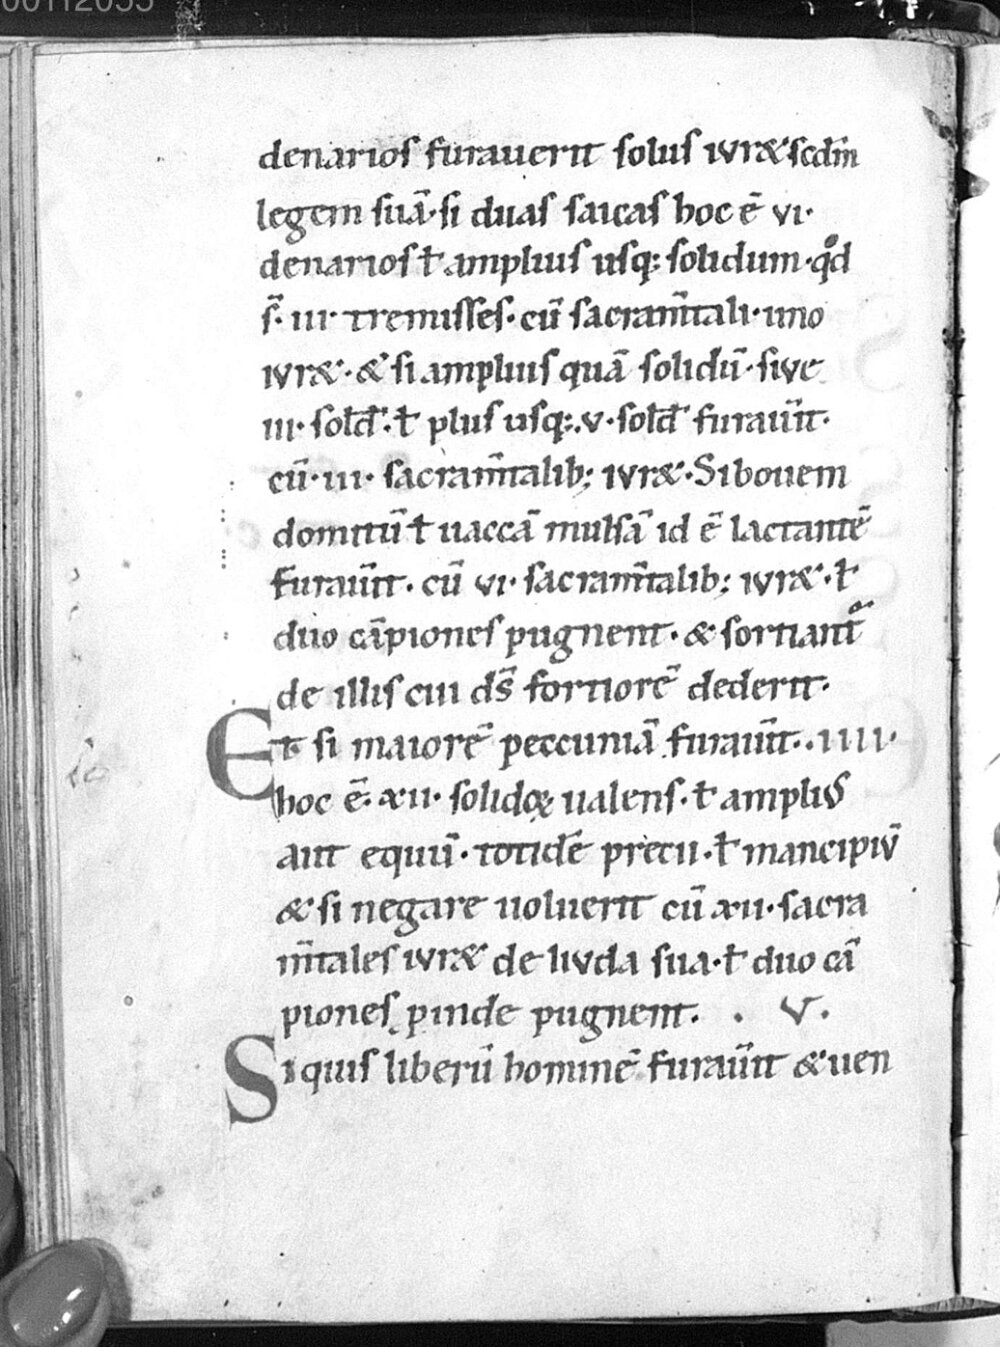 00112055
denarios furauerit solus iur&' scdm̄
legem suā· si duas saicas hoc ē vi·
denarios ł amplius usq; solidum· qd
s̄· iii· tremisses· cū sacram̄tali· uno
iur&'· &' si amplius quā solidū· sive
iii· sold'· ł plus usq;· v· sold' furaūit·
cū· iii· sacram̄talib; iur&'· Si bouem
domitū ł uaccā mulsā id ē lactantē
furaūit· cū vi· sacram̄talib; iur&'· ł
duo cāpiones pugnent· & sortiant̄
de illis cui ds̄ fortiorē dederit·
Et si maiorē peccuniā furaūit· ·iiii·
hoc ē· xii· solidoꝝ ualens· ł amplius
aut equū· totidē precii· ł mancipiū
&' si negare uoluerit cū xii· sacra
m̄tales iur&' de liuda sua· ł duo cā
piones pinde pugnent· · V·
Si quis liberū hominē furaūit &' uen